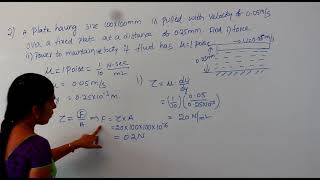 2) A plate having size 100x100mm is pulled with velocity of 0.05m/s
over a fixed plate at a distance of 0.25mm. Find i) force
ii) Power to maintain velocity if fluid has μ = 1 Poise
μ = 1 Poise = 1/10 N-sec/m²
u = 0.05 m/s
y = 0.25x10⁻³ m.
i) τ = μ du/dy
= (1/10) (0.05/0.25x10⁻³)
= 20 N/m²
τ = F/A ⇒ F = τ x A
= 20x100x100x10⁻⁶
= 0.2N